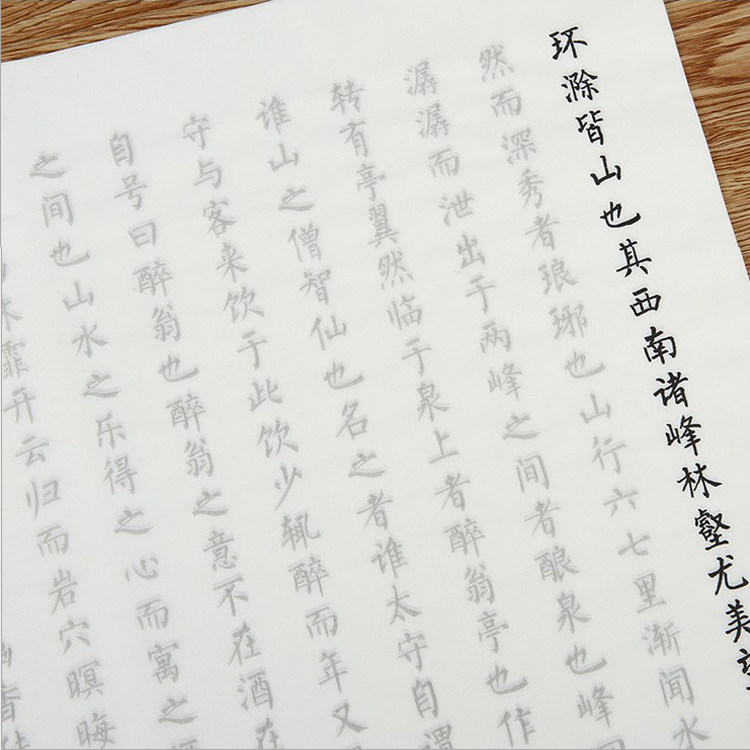 环滁皆山也其西南诸峰林壑尤美望
然而深秀者琅琊也山行六七里渐闻水
潺潺而泄出于两峰之间者酿泉也峰回
转有亭翼然临于泉上者醉翁亭也作
谁山之僧智仙也名之者谁太守自谓
守与客来饮于此饮少辄醉而年又
自号曰醉翁也醉翁之意不在酒在
之间也山水之乐得之心而寓之
林霏开云归而岩穴暝晦
香